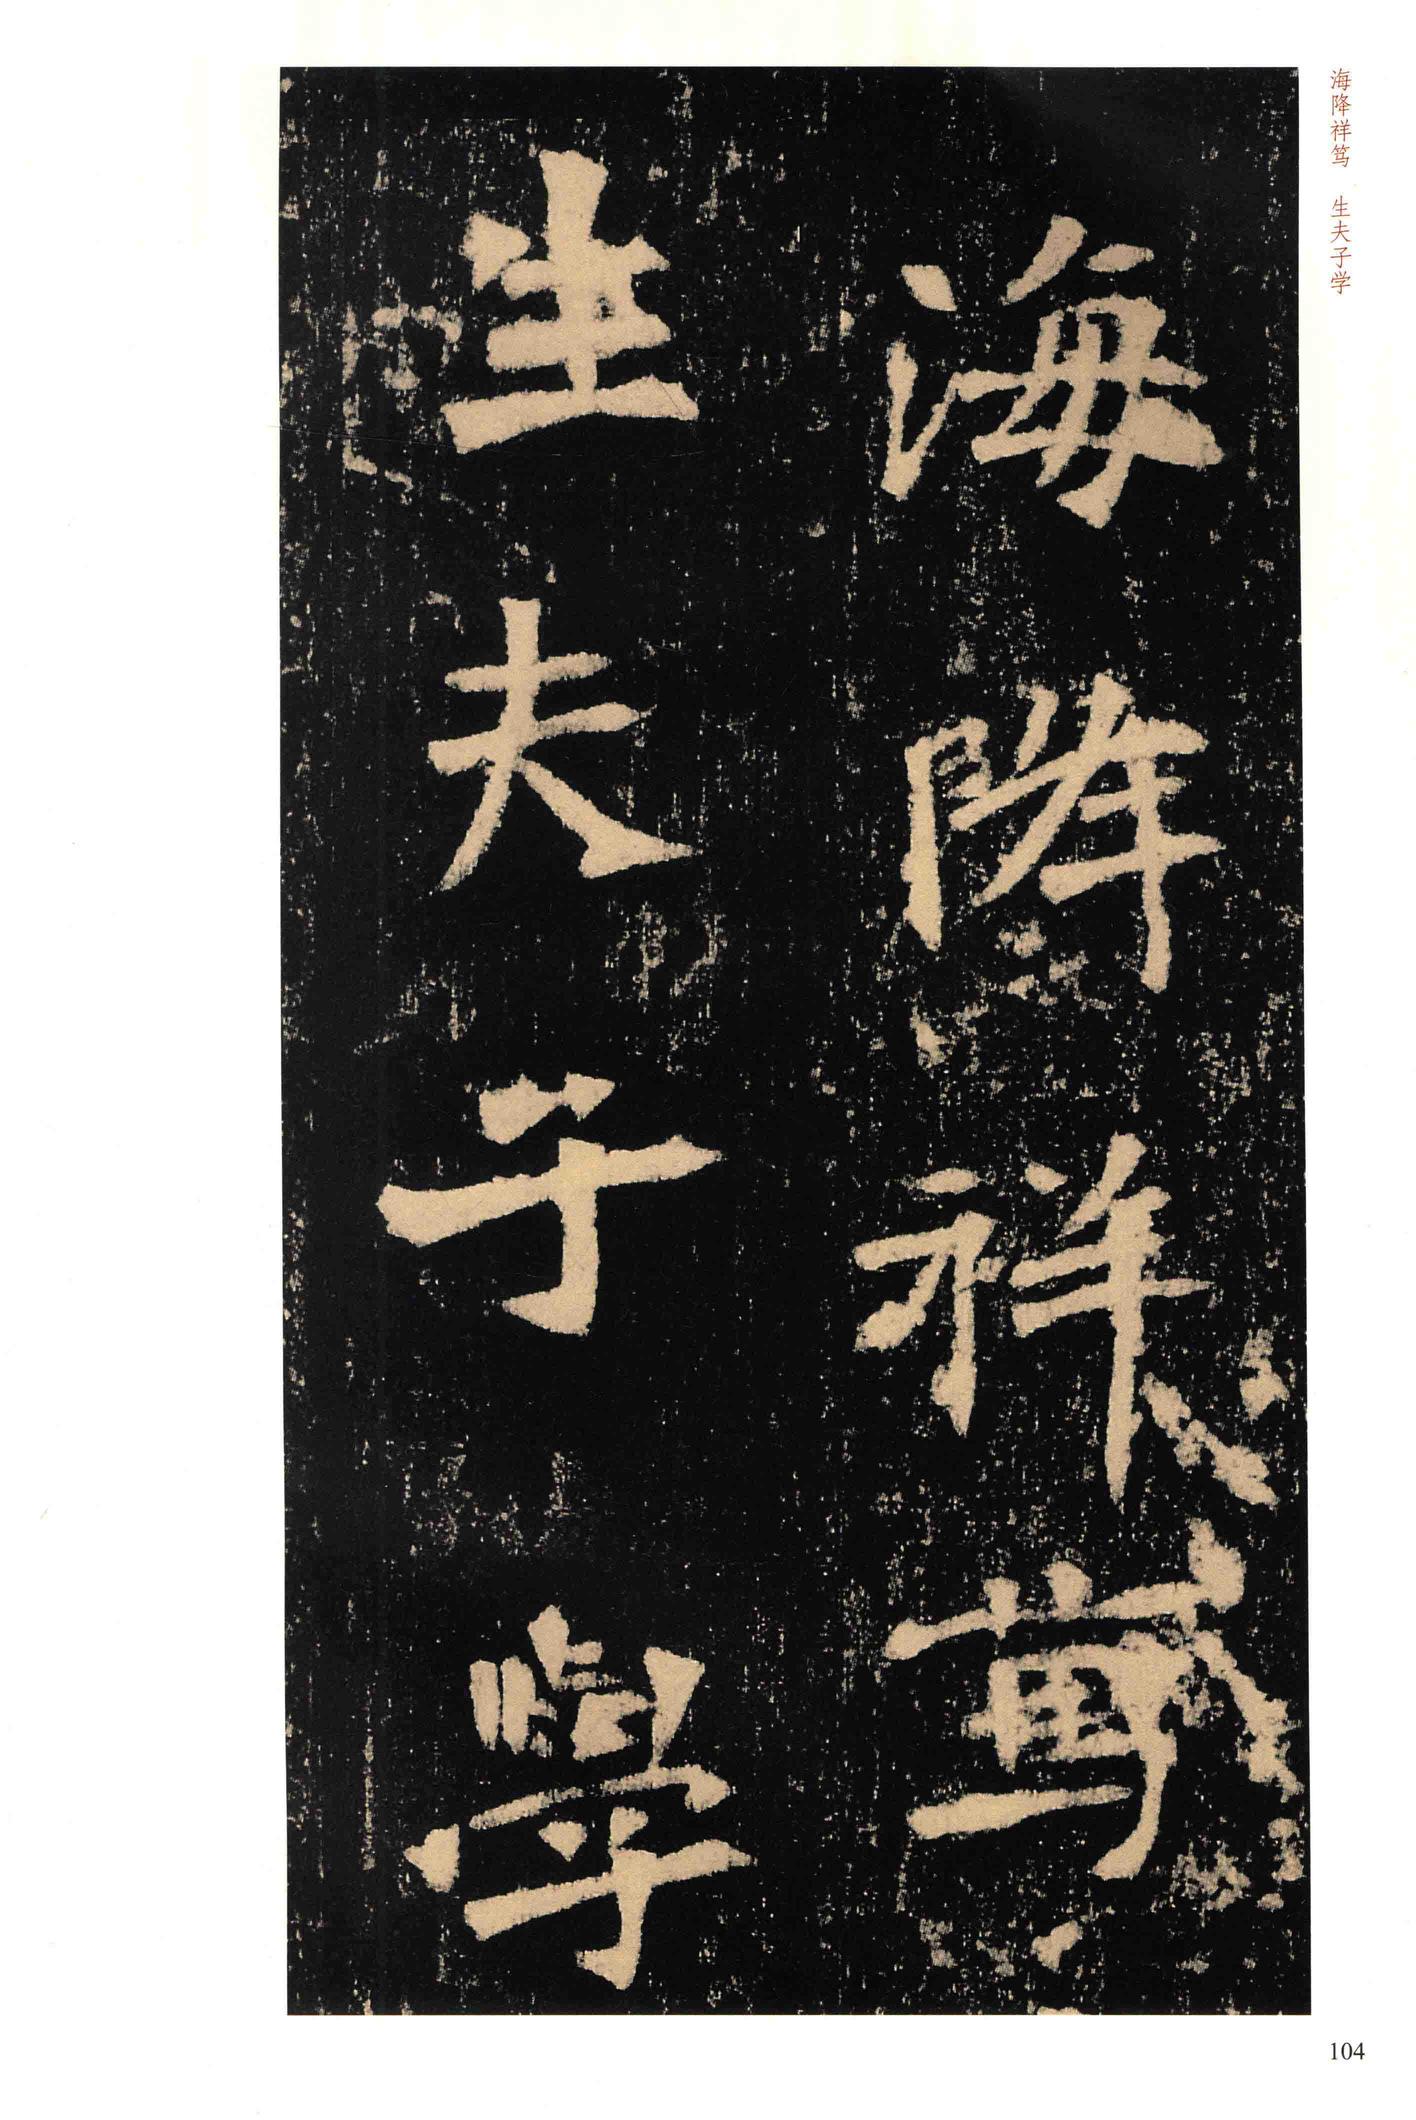 海降祥笃　生夫子学
海降祥篤
生夫子學
104